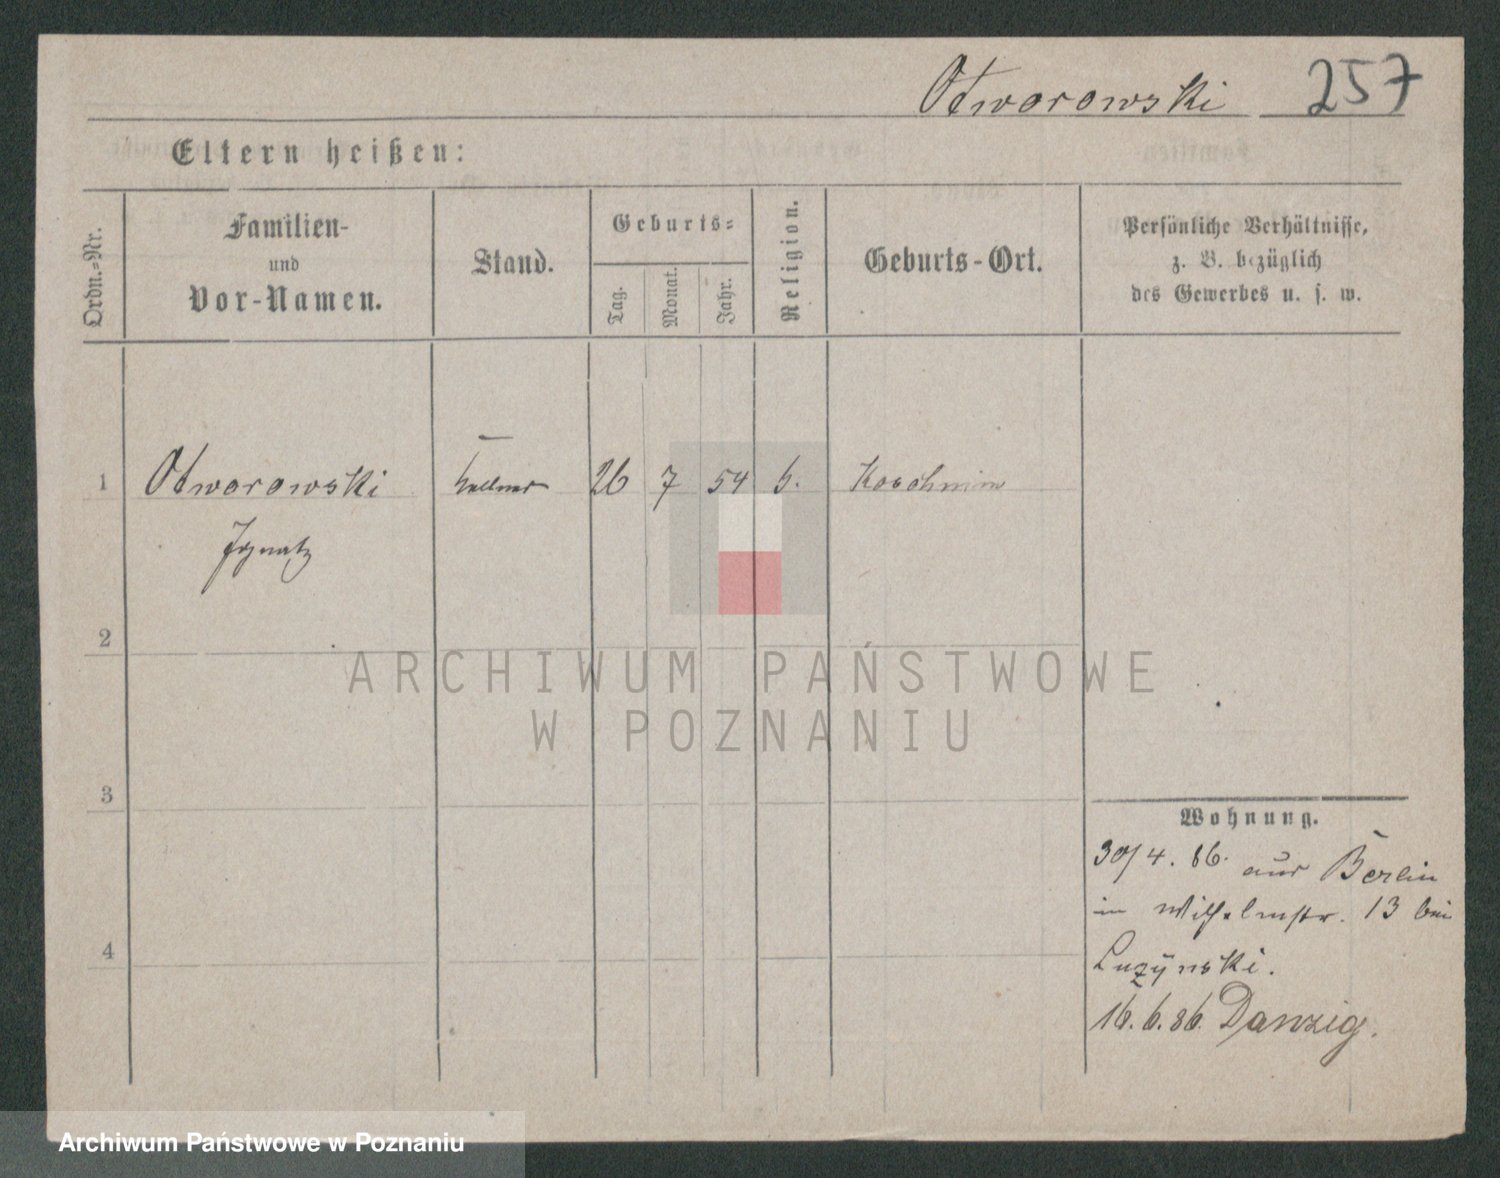 Otworowski 257
Eltern heißen:
Ordn.-Nr.
Familien-
und
Vor-Namen.
Stand.
Geburts-
Tag.
Monat.
Jahr.
Religion.
Geburts-Ort.
Persönliche Verhältnisse,
z. B. bezüglich
des Gewerbes u. s. w.
1 Otworowski Kellner 26 7 54 k. Koschmin
Ignatz
2
3
4
Wohnung.
30/4. 86. aus Berlin
in Wilhelmstr. 13 bei
Luzÿnski.
16.6.86. Danzig.
ARCHIWUM PAŃSTWOWE
W POZNANIU
Archiwum Państwowe w Poznaniu